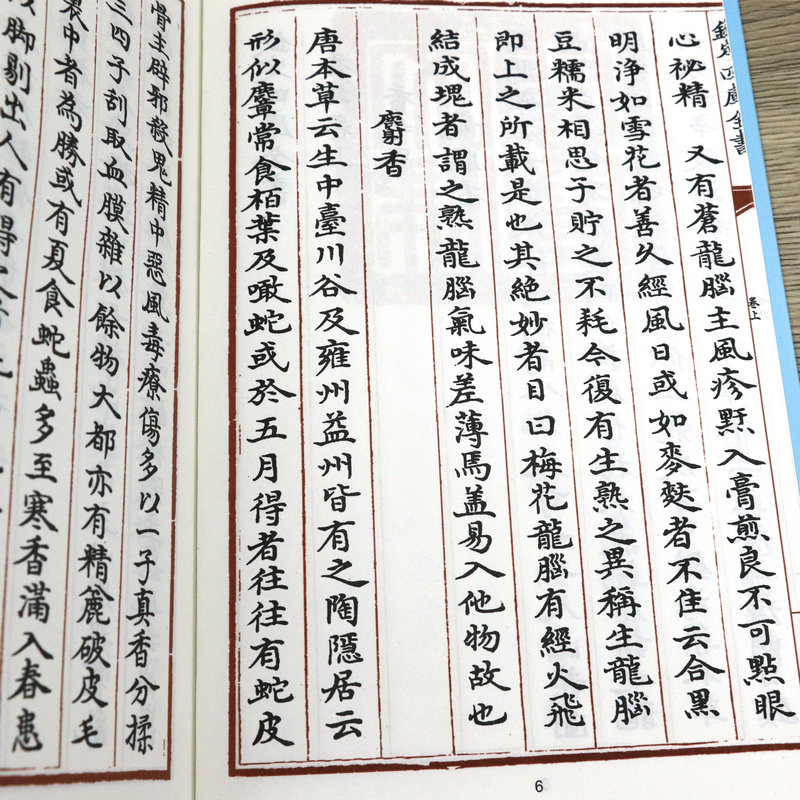 欽定四庫全書
卷上
心祕精　又有蒼龍腦主風疹䵟入膏煎良不可點眼
明淨如雪花者善久經風日或如麥麩者不佳云合黑
豆糯米相思子貯之不耗今復有生熟之異稱生龍腦
即上之所載是也其絶妙者目曰梅花龍腦有經火飛
結成塊者謂之熟龍腦氣味差薄焉盖易入他物故也
麝香
唐本草云生中臺川谷及雍州益州皆有之陶隱居云
形似麞常食栢葉及噉蛇或於五月得者往往有蛇皮
6
骨主辟邪殺鬼精中惡風毒療傷多以一子真香分揉
三四子刮取血膜雜以餘物大都亦有精麄破皮毛
裹中者為勝或有夏食蛇蟲多至寒香滿入春患
以脚剔出人有得之